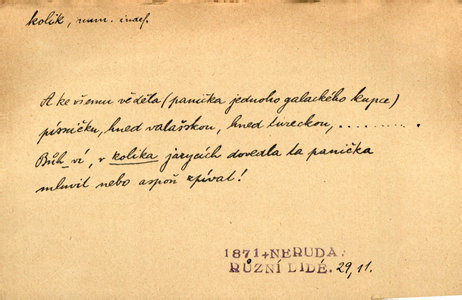 kolik, num. indef.
A ke všemu věděla (panička jednoho galackého kupce)
písničku, hned valašskou, hned tureckou, ..........
Bůh ví, v kolika jazycích dovedla ta panička
mluvit nebo aspoň zpívat!
1871+NERUDA:
RŮZNÍ LIDÉ. 29,11.